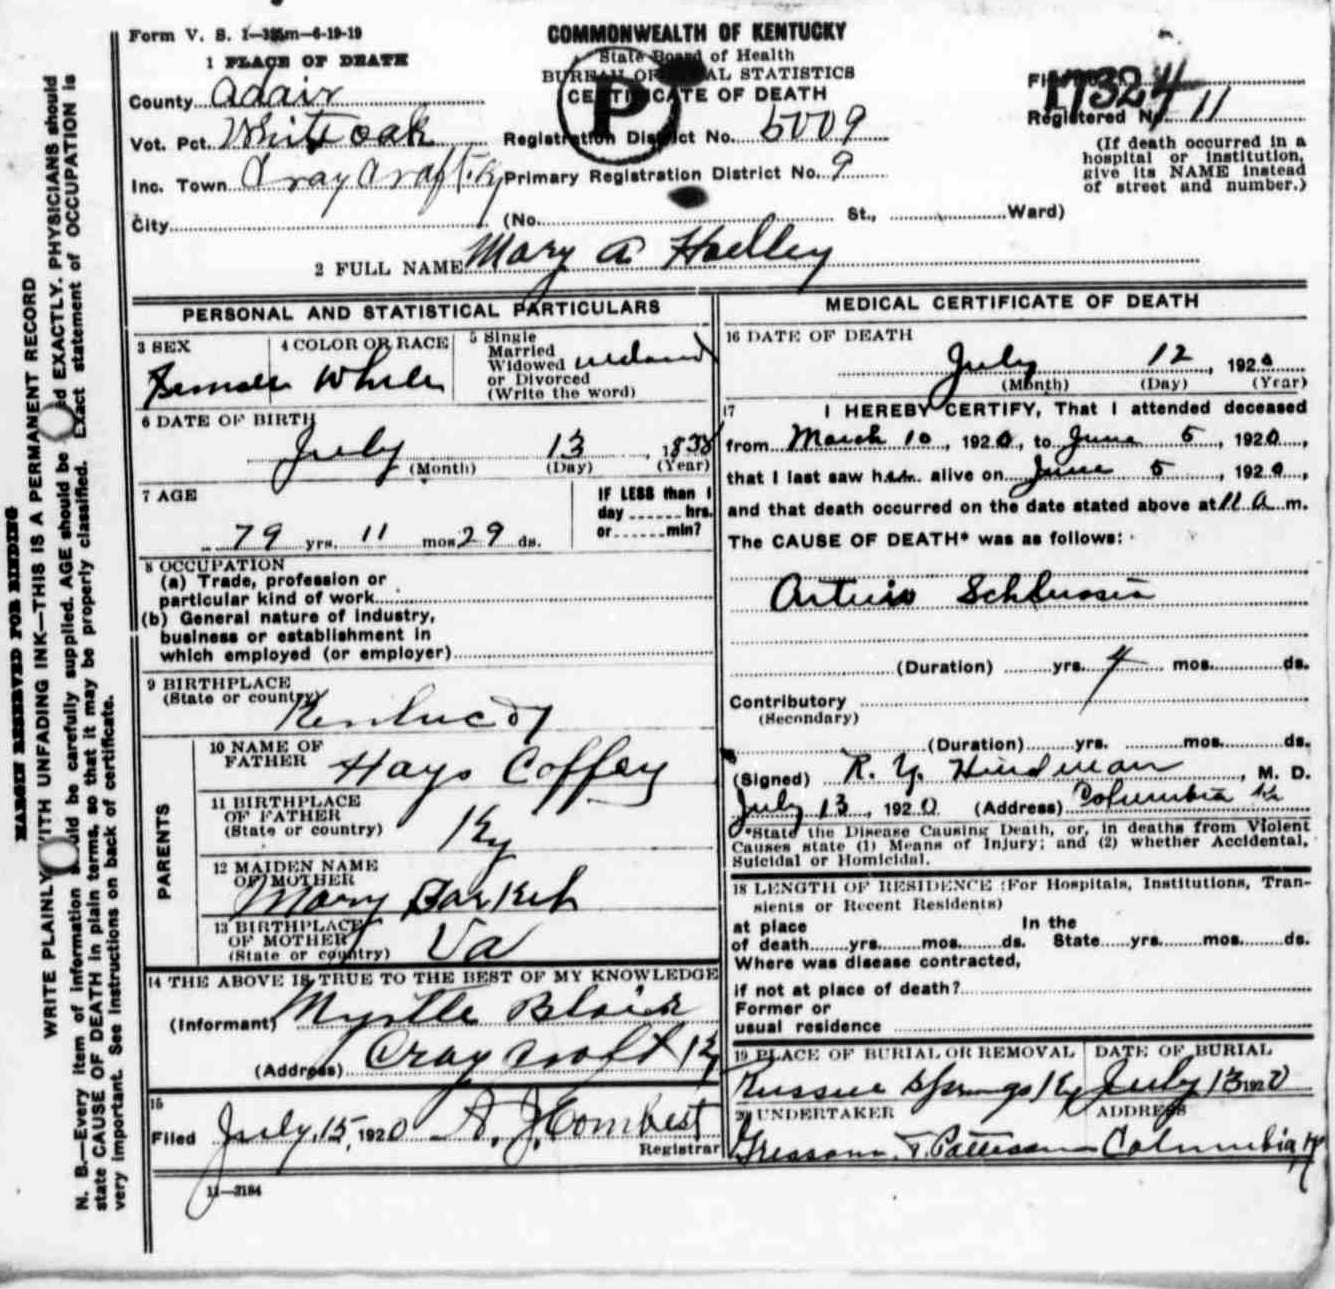 Form V. S. 1—325m—6-19-19
COMMONWEALTH OF KENTUCKY
State Board of Health
BUREAU OF VITAL STATISTICS
CERTIFICATE OF DEATH
P
File No. 17324
Registered No. 11
(If death occurred in a
hospital or institution,
give its NAME instead
of street and number.)
1 PLACE OF DEATH
County Adair
Vot. Pct. White oak
Registration District No. 5009
Inc. Town Cray Craft, Ky
Primary Registration District No. 9
City
(No. St., Ward)
2 FULL NAME Mary A
PERSONAL AND STATISTICAL PARTICULARS
3 SEX
Female
4 COLOR OR RACE
White
5 Single
Married
Widowed
or Divorced
(Write the word)
6 DATE OF BIRTH
July 13, 1838
(Month) (Day) (Year)
7 AGE
79 yrs. 11 mos 29 ds.
IF LESS than 1
day hrs.
or min?
8 OCCUPATION
(a) Trade, profession or
particular kind of work
(b) General nature of industry,
business or establishment in
which employed (or employer)
9 BIRTHPLACE
(State or country)
Kentucky
PARENTS
10 NAME OF
FATHER Hays Coffey
11 BIRTHPLACE
OF FATHER
(State or country) Ky
12 MAIDEN NAME
OF MOTHER
Mary
13 BIRTHPLACE
OF MOTHER
(State or country) Va
14 THE ABOVE IS TRUE TO THE BEST OF MY KNOWLEDGE
(Informant) Myrtle Blair
(Address) Cray croft Ky
15
Filed July 15, 1920 A. J. Combest
Registrar
11—3184
MEDICAL CERTIFICATE OF DEATH
16 DATE OF DEATH
July 12, 1920
(Month) (Day) (Year)
17 I HEREBY CERTIFY, That I attended deceased
from March 10, 1920, to June 5, 1920,
that I last saw her alive on June 5, 1920,
and that death occurred on the date stated above at 11 a m.
The CAUSE OF DEATH* was as follows:
(Duration) yrs. 4 mos. ds.
Contributory
(Secondary)
(Duration) yrs. mos. ds.
(Signed) R. Y. Hindman, M. D.
July 13, 1920 (Address) Columbia Ky
*State the Disease Causing Death, or, in deaths from Violent
Causes state (1) Means of Injury; and (2) whether Accidental,
Suicidal or Homicidal.
18 LENGTH OF RESIDENCE (For Hospitals, Institutions, Tran-
sients or Recent Residents)
at place In the
of death yrs. mos. ds. State yrs. mos. ds.
Where was disease contracted,
if not at place of death?
Former or
usual residence
19 PLACE OF BURIAL OR REMOVAL DATE OF BURIAL
Springs Ky July 13 1920
20 UNDERTAKER ADDRESS
Columbia Ky
MARGIN RESERVED FOR BINDING
WRITE PLAINLY WITH UNFADING INK—THIS IS A PERMANENT RECORD
N. B.—Every item of information should be carefully supplied. AGE should be stated EXACTLY. PHYSICIANS should
state CAUSE OF DEATH in plain terms, so that it may be properly classified. Exact statement of OCCUPATION is
very important. See instructions on back of certificate.